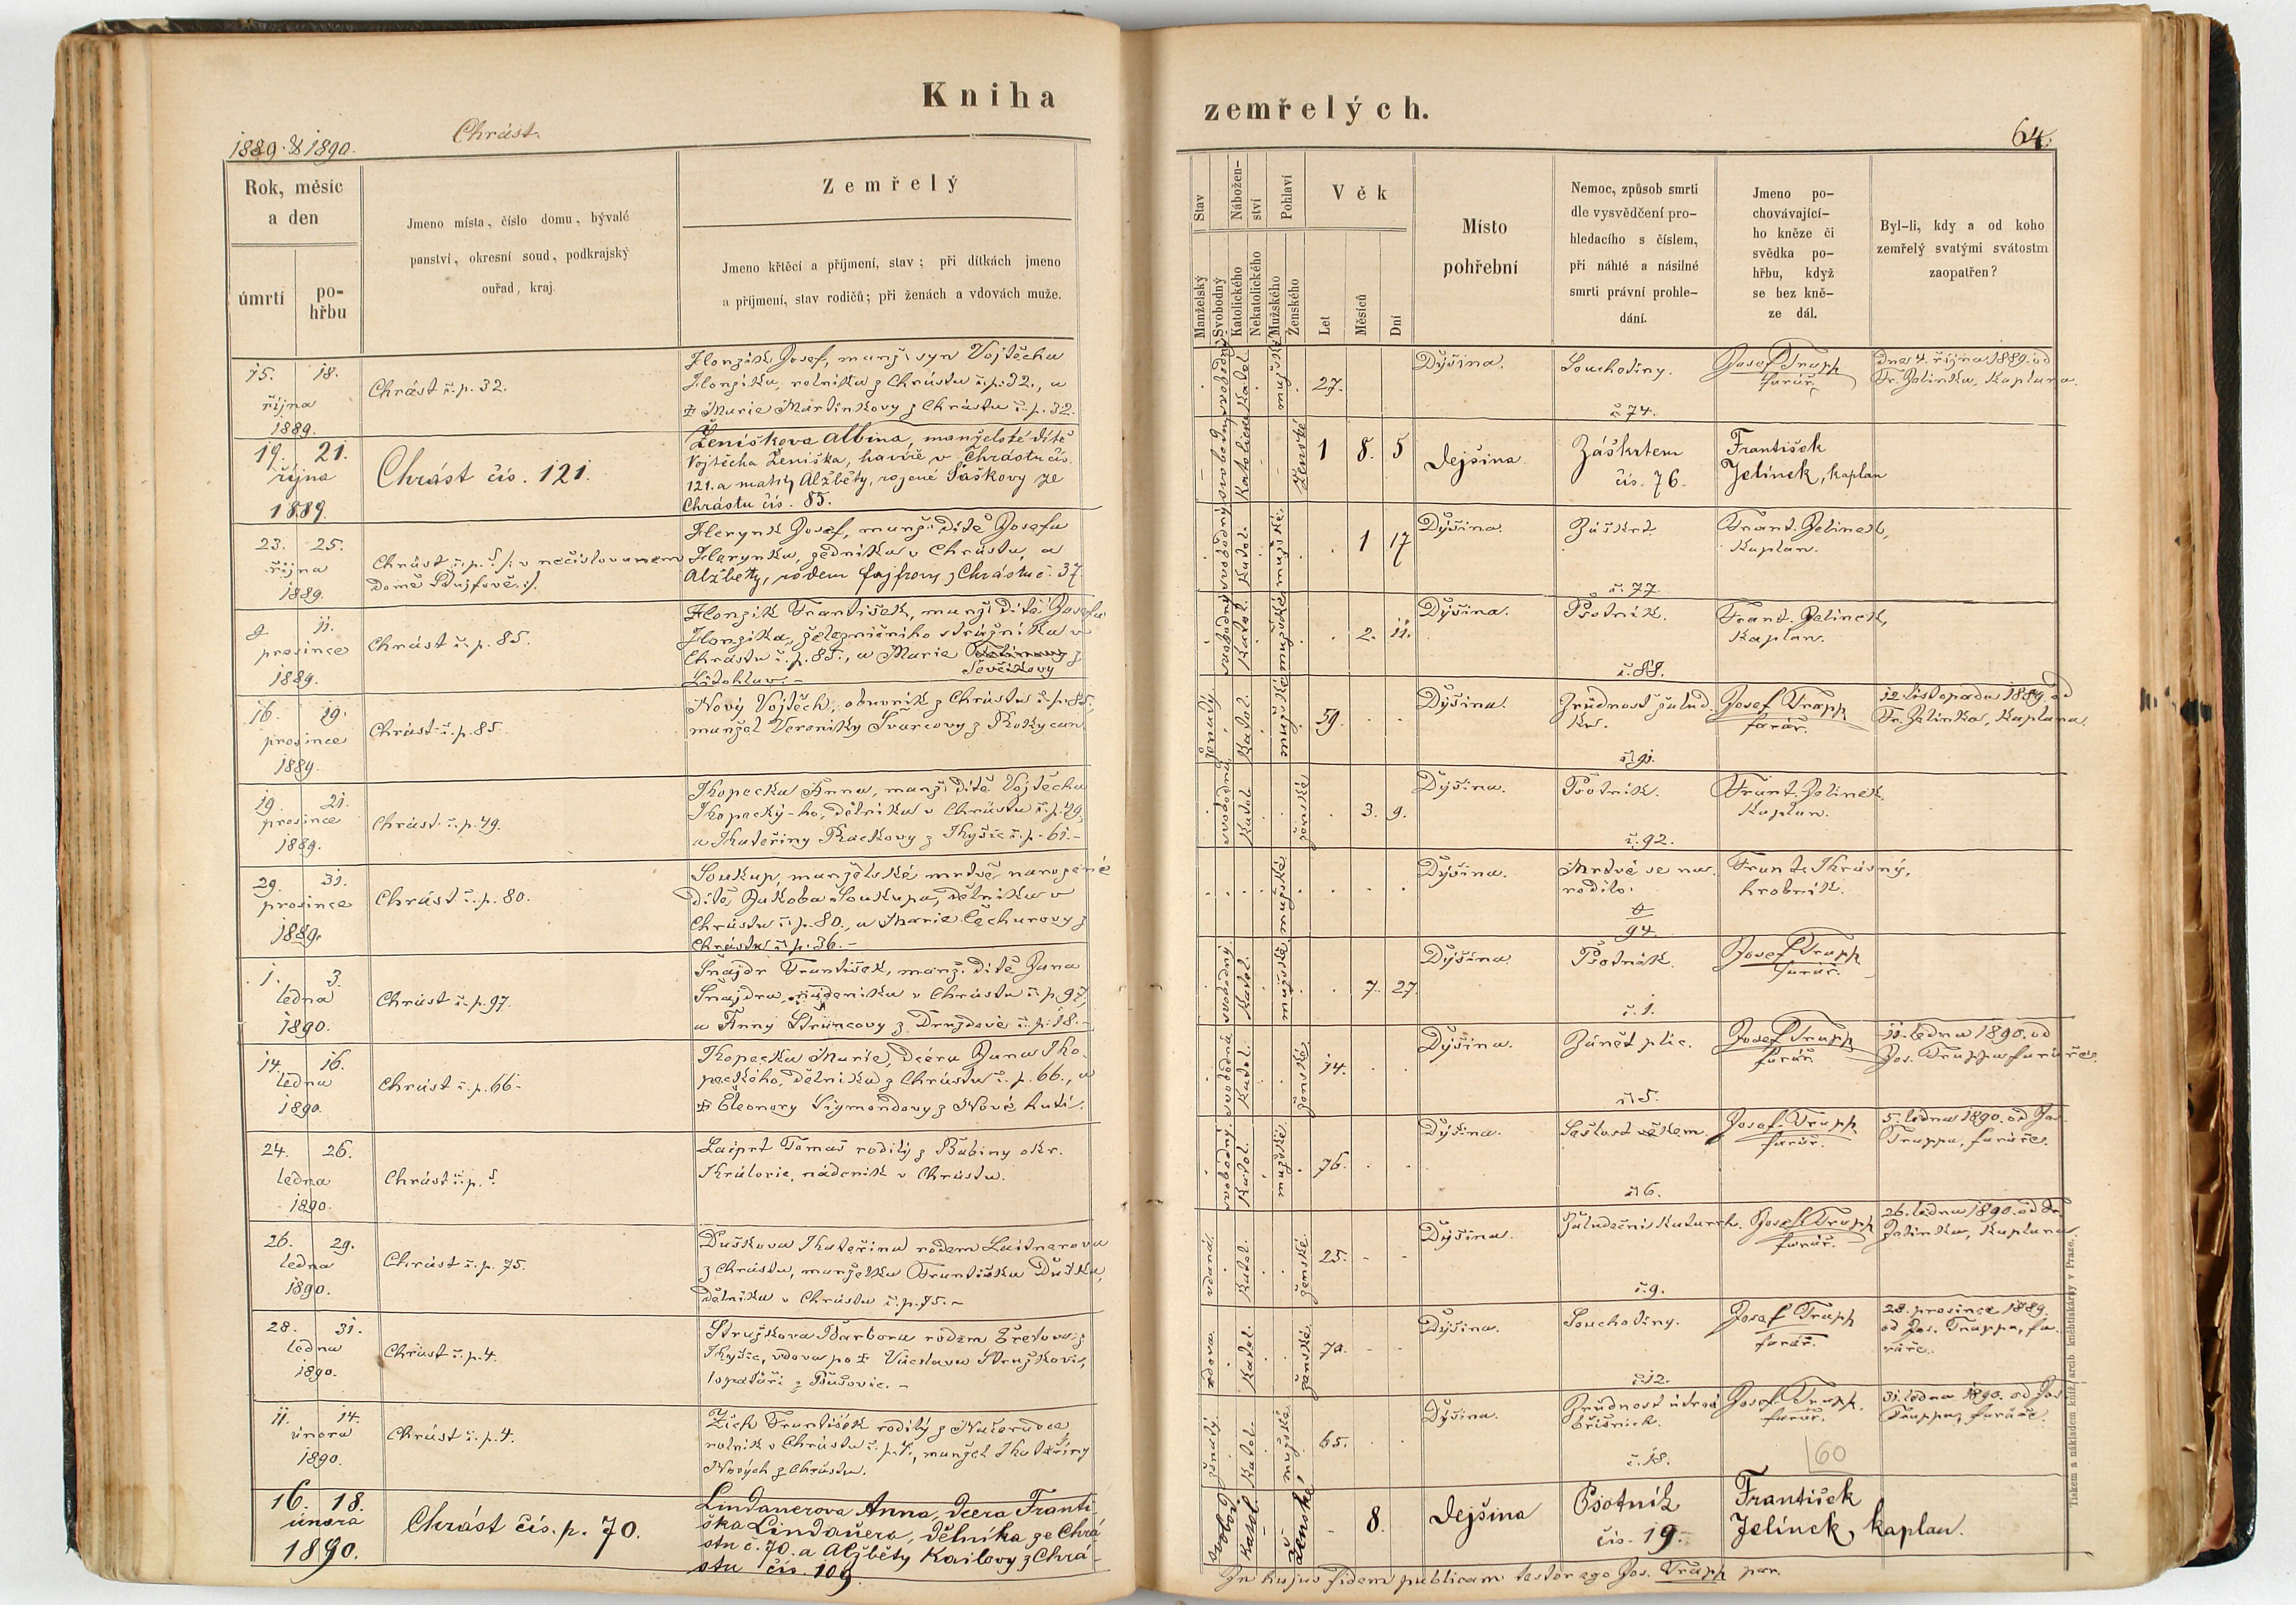 Kniha
zemřelých.
1889 & 1890.
Chrást.
64.
Rok, měsíc
a den
úmrtí
po-
hřbu
Jmeno místa, číslo domu, bývalé
panství, okresní soud, podkrajský
ouřad, kraj.
Zemřelý
Jmeno křtěcí a příjmení, stav; při dítkách jmeno
a příjmení, stav rodičů; při ženách a vdovách muže.
Stav
Manželský
Svobodný
Nábožen-
ství
Katolického
Nekatolického
Pohlaví
Mužského
Ženského
Věk
Let
Měsíců
Dní
Místo
pohřební
Nemoc, způsob smrti
dle vysvědčení pro-
hledacího s číslem,
při náhlé a násilné
smrti právní prohle-
dání.
Jmeno po-
chovávající-
ho kněze či
svědka po-
hřbu, když
se bez kně-
ze dál.
Byl-li, kdy a od koho
zemřelý svatými svátostmi
zaopatřen?
15. 18.
října
1889.
Chrást č. p. 32.
Josef, manž. syn Vojtěcha
rolníka z Chrástu č. p. 32., a
Marie Martínkovy z Chrástu č. p. 32.
svobodný
Katol.
mužské
27.
Dýšina.
Souchotiny.
č. 74.
Josef Trapp
farář.
dne 4. října 1889. od
Fr. Jelínka, kaplana.
19. 21.
října
1889.
Chrást čís. 121.
Ženíškova Albina, manželské dítě
Vojtěcha Ženíška, havíře v Chrástu čís.
121. a matky Alžběty, rozené Paškovy ze
Chrástu čís. 85.
svobodný
Katolické
Ženské
1 8. 5
Dejšina
Záškrtem
čís. 76.
František
Jelínek, kaplan
23. 25.
října
1889.
Chrást č. p. /: v nečíslovaném
domě :/.
Josef, manž. dítě Josefa
v Chrástu, a
Alžběty, rodem z Chrástu č. 37.
svobodný
Katol.
mužské
1 17
Dýšina.
Záškrt.
č. 77.
Frant. Jelínek,
kaplan.
9. 11.
prosince
1889.
Chrást č. p. 85.
František, manž. dítě Josefa
železničního strážníka v
Chrástu č. p. 85., a Marie z
Ševčíkovy
Litohlav.
svobodný
Katol.
mužské
2. 11.
Dýšina.
Psotník.
č. 88.
Frant. Jelínek,
kaplan.
16. 19.
prosince
1889.
Chrást č. p. 85
Nový Vojtěch, obuvník z Chrástu č. p. 85,
manžel Veroniky Švarcovy z Rokycan
ženatý
Katol.
mužské
59.
Dýšina.
Zrůdnost žalud-
ku.
č. 91.
Josef Trapp
farář.
12. listopadu 1889. od
Fr. Jelínka, kaplana.
19. 21.
prosince
1889.
Chrást č. p. 49.
Kopecka Anna, manž. dítě Vojtěcha
Kopecký-ho, dělníka v Chrástu č. p. 49,
a Kateřiny Rackovy z Kyšic č. p. 61.
svobodná
Katol.
ženské
3. 9.
Dýšina.
Psotník.
č. 92.
Frant. Jelínek,
kaplan.
29. 31.
prosince
1889.
Chrást č. p. 80.
Soukup, manželské mrtvě narozené
dítě Jakoba Soukupa, dělníka v
Chrástu č. p. 80., a Marie Čechurovy z
Chrástu č. p. 36.
mužské
Dýšina.
Mrtvé se na-
rodilo.
94.
Frant. Krásný,
hrobník.
1. 3.
ledna
1890.
Chrást č. p. 97.
Šnajdr František, manž. dítě Jana
Šnajdra, nádeníka v Chrástu č. p. 97,
a Anny z Druzdové č. p. 18.
svobodný
Katol.
mužské
7. 27.
Dýšina.
Psotník.
č. 1.
Josef Trapp
farář.
14. 16.
ledna
1890.
Chrást č. p. 66.
Kopecka Marie, dcera Jana Ko-
peckého, dělníka z Chrástu č. p. 66., a
Eleonory Sigmondovy z Nové huti.
svobodná
Katol.
ženské
14.
Dýšina.
Zánět plic.
č. 5.
Josef Trapp
farář.
11. ledna 1890. od
Jos. Trappa, faráře.
24. 26.
ledna
1890.
Chrást č. p.
Laiprt Tomáš rodilý z Babiny okr.
Kralovic, nádeník v Chrástu.
svobodný
Katol.
mužské
76.
Dýšina.
Sešlost věkem
č. 6.
Josef Trapp
farář.
5. ledna 1890. od Jos.
Trappa, faráře.
26. 29.
ledna
1890.
Chrást č. p. 75.
Duškova Kateřina rodem Laitnerova
z Chrástu, manželka Františka Duška,
dělníka v Chrástu č. p. 75.
vdaná
Katol.
ženské.
25.
Dýšina.
Žaludeční katarrh.
č. 9.
Josef Trapp
farář.
26. ledna 1890. od Fr.
Jelínka, kaplana.
28. 31.
ledna
1890.
Chrást č. p. 4.
Stružkova Barbora rodem z
Kyšic, vdova po Václavu Stružkovi,
z Bušovic.
vdova
Katol.
ženské
70.
Dýšina.
Souchotiny.
č. 12.
Josef Trapp
farář.
28. prosince 1889.
od Jos. Trappa, fa-
ráře.
11. 14.
února
1890.
Chrást č. p. 4.
Zich František rodilý z
rolník v Chrástu č. p. 4., manžel Kateřiny
Nových z Chrástu.
ženatý
Katol.
mužské
65.
Dýšina.
Zrůdnost útrob
břišních.
č. 18.
Josef Trapp.
farář.
31. ledna 1890. od Jos.
Trappa, faráře.
60
16. 18.
února
1890.
Chrást čís. p. 70.
Lindauerova Anna, dcera Franti-
ška Lindauera, dělníka ze Chrá-
stu č. 70. a Alžběty Kailovy z Chrá-
stu čís. 109.
svobod.
Katol
Ženské
8.
Dejšina
Psotník
čís. 19.
František
Jelínek, kaplan.
In hujus fidem publicam testor ego Jos. Trapp par.
Tiskem a nákladem kníž. arcib. knihtiskárny v Praze.